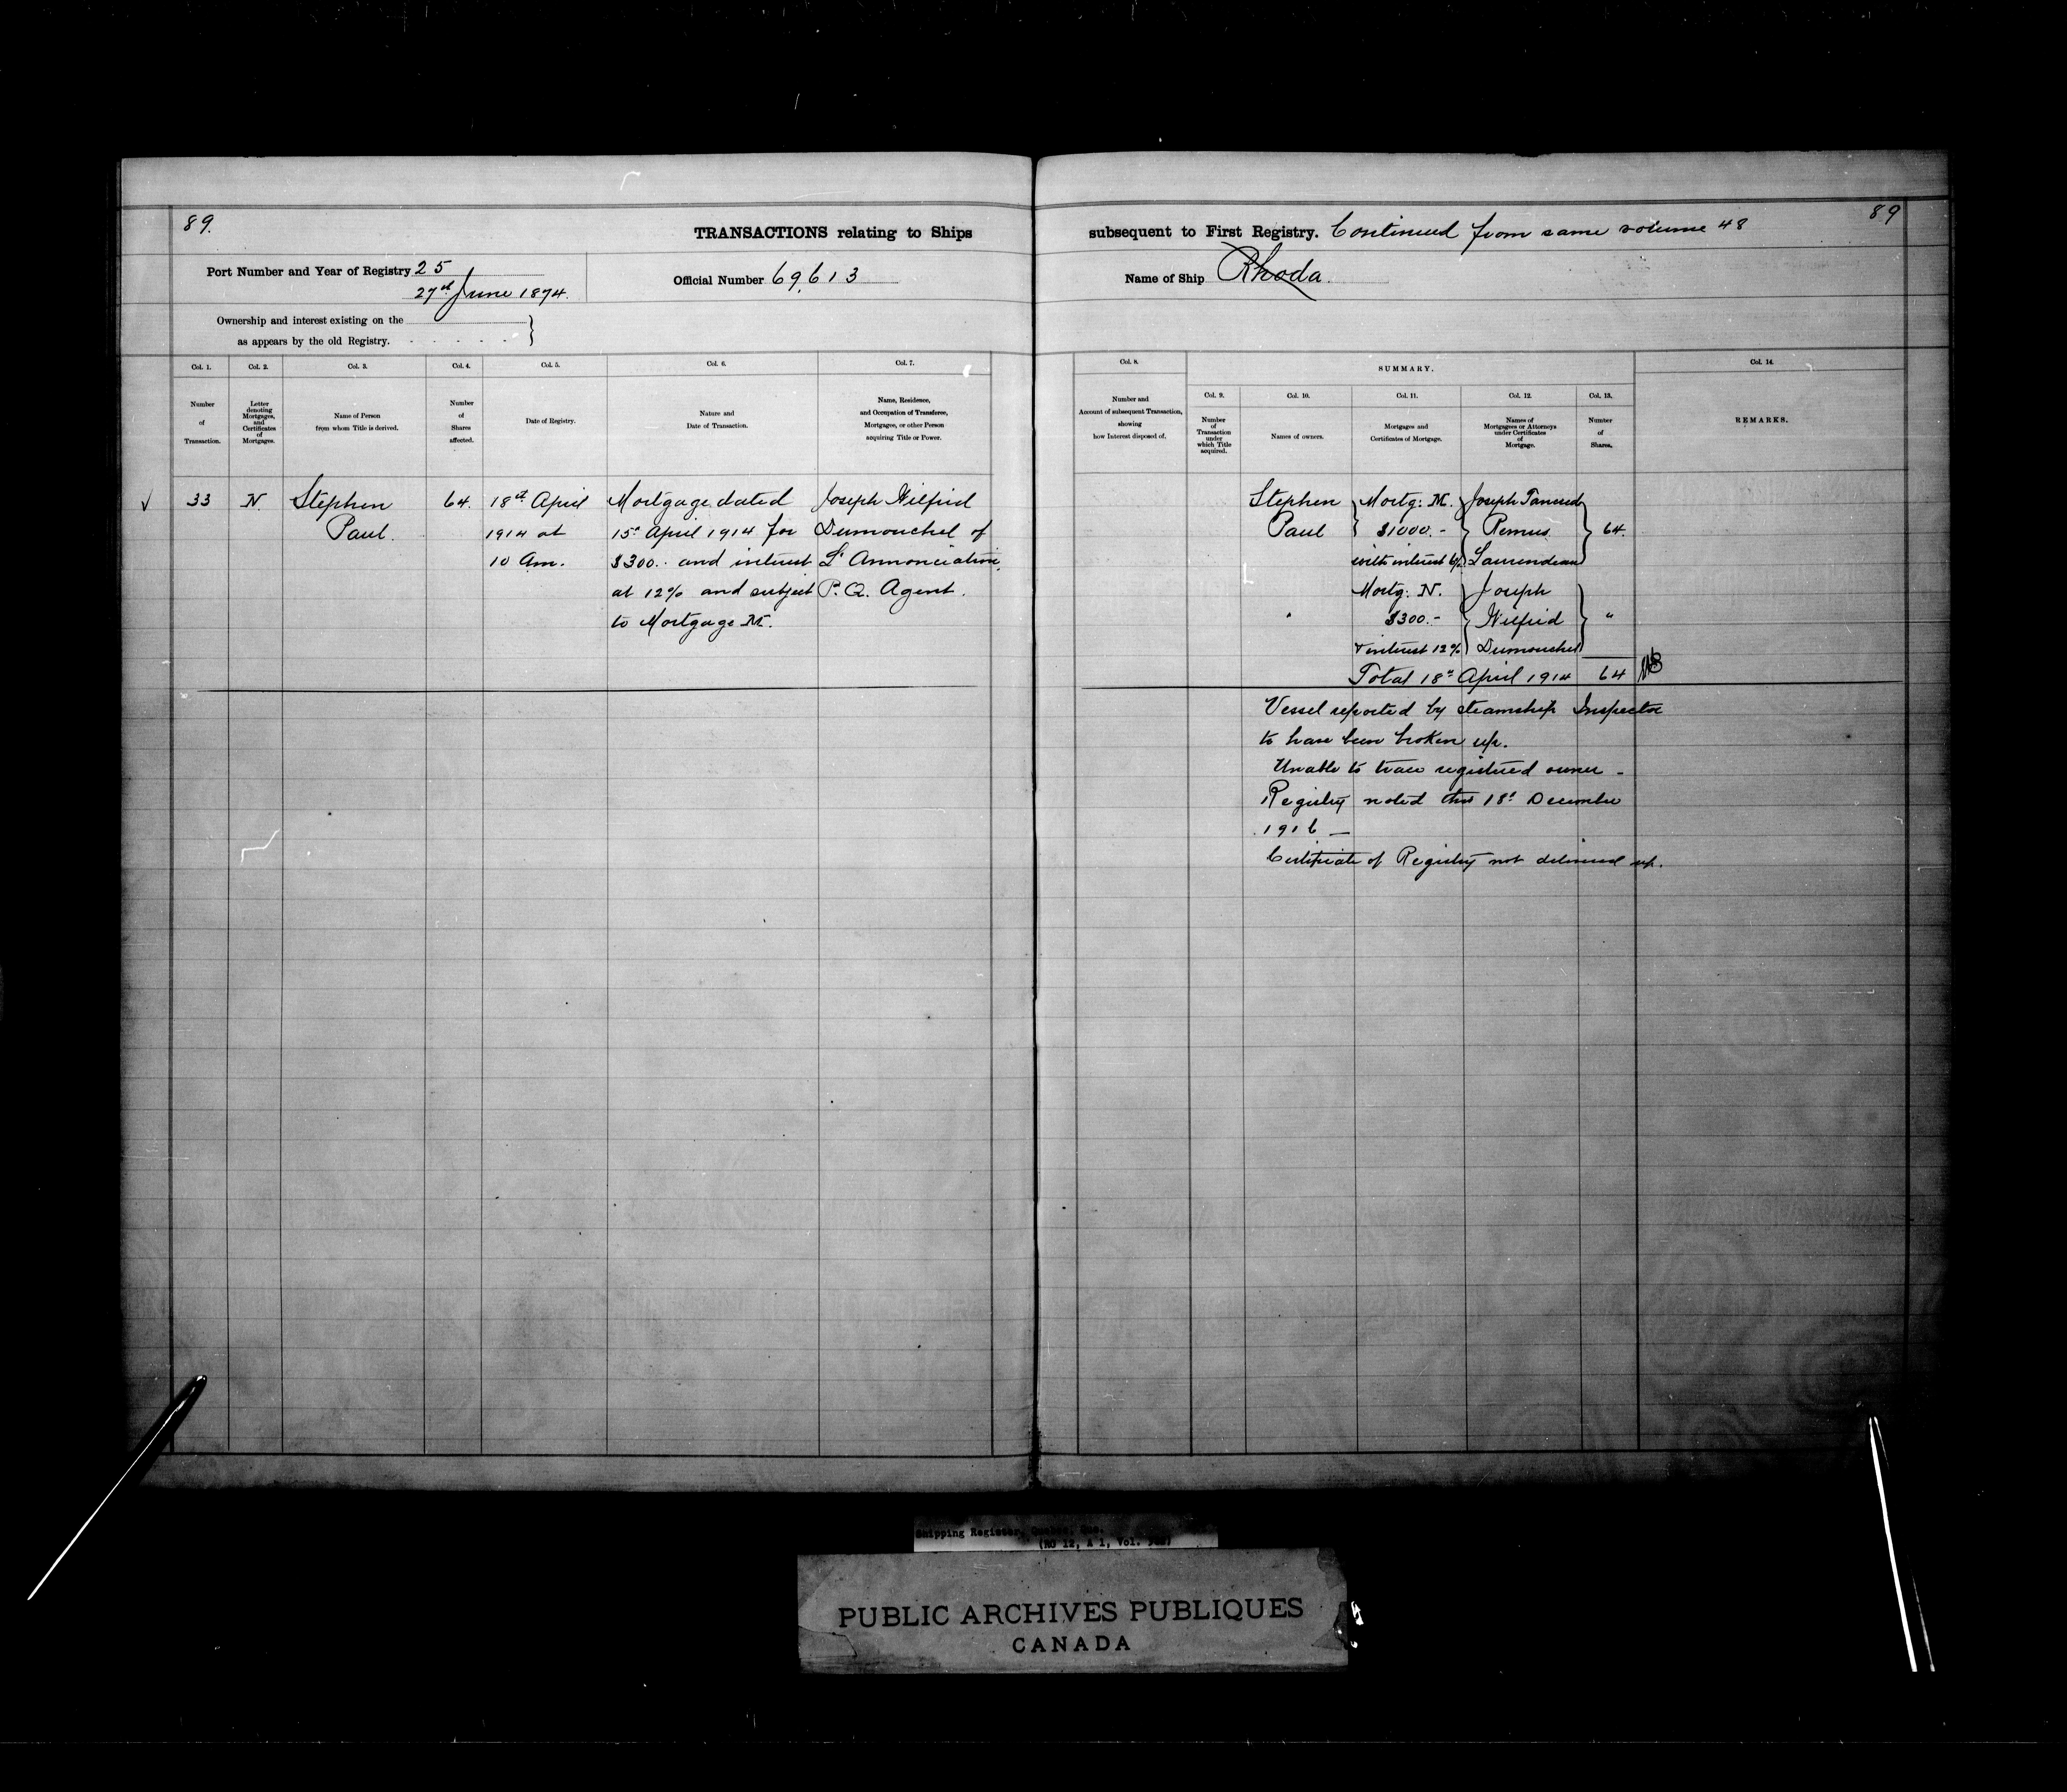 89.
TRANSACTIONS relating to Ships
Port Number and Year of Registry 25
27th June 1874.
Official Number 69,613
Ownership and interest existing on the
as appears by the old Registry.
Col. 1.
Number
of
Transaction.
Col. 2.
Letter
denoting
Mortgages,
and
Certificates
of
Mortgages.
Col. 3.
Name of Person
from whom Title is derived.
Col. 4.
Number
of
Shares
affected.
Col. 5.
Date of Registry.
Col. 6.
Nature and
Date of Transaction.
Col. 7.
Name, Residence,
and Occupation of Transferee,
Mortgagee, or other Person
acquiring Title or Power.
33 N. Stephen 64. 18th April Mortgage dated Joseph Wilfrid
Paul. 1914 at 15th April 1914 for Dumouchel of
10 Am. $300.. and interest L'Annonciation,
at 12% and subject P.Q. Agent.
to Mortgage M.
89
subsequent to First Registry. Continued from same volume 48
Name of Ship Rhoda
Col. 8.
Number and
Account of subsequent Transaction,
showing
how Interest disposed of.
SUMMARY.
Col. 9.
Number
of
Transaction
under
which Title
acquired.
Col. 10.
Names of owners.
Col. 11.
Mortgages and
Certificates of Mortgage.
Col. 12.
Names of
Mortgagees or Attorneys
under Certificates
of
Mortgage.
Col. 13.
Number
of
Shares.
Col. 14.
REMARKS.
Stephen Mortg: M. Joseph Tancred
Paul $1000.- Remus 64.
with interest 6% Laurendeau
Mortg: N. Joseph
" $300.- Wilfrid "
& interest 12% Dumouchel
Total 18th April 1914 64
Vessel reported by steamship Inspector
to have been broken up.
Unable to trace registered owner -
Registry noted this 18th December
1916 —
Certificate of Registry not delivered up.
Shipping Register, Quebec, Que.
(RG 12, A 1, Vol.
PUBLIC ARCHIVES PUBLIQUES
CANADA